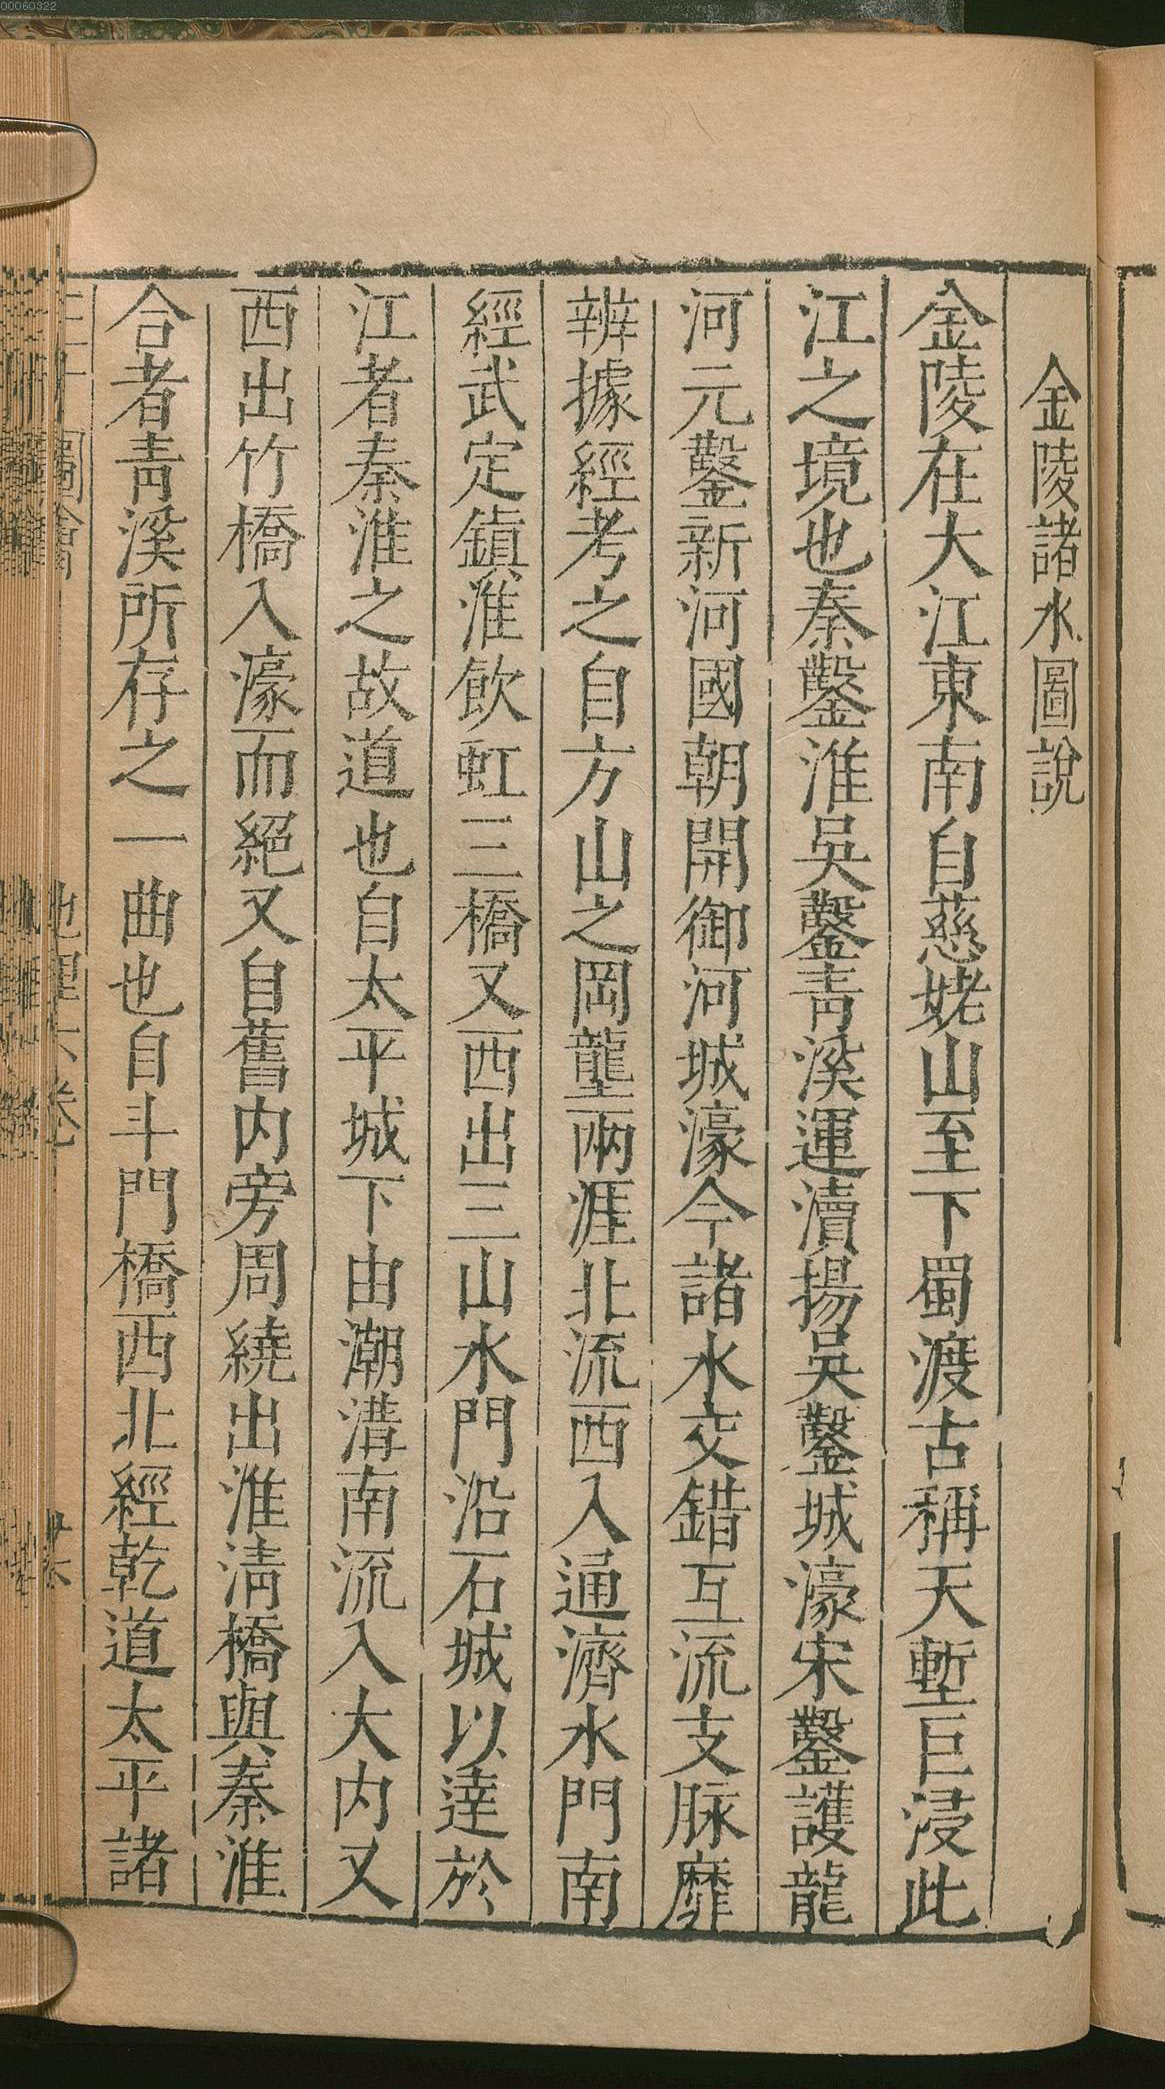 00060322
金陵諸水圖說
金陵在大江東南自慈姥山至下蜀渡古稱天塹巨浸此
江之境也秦鑿淮吳鑿青溪運瀆揚吳鑿城濠宋鑿護龍
河元鑿新河國朝開御河城濠今諸水交錯互流支脉靡
辨據經考之自方山之岡壟兩涯北流西入通濟水門南
經武定鎮淮飲虹三橋又西出三山水門沿石城以達於
江者秦淮之故道也自太平城下由潮溝南流入大内又
西出竹橋入濠而絕又自舊内旁周繞出淮淸橋與秦淮
合者靑溪所存之一曲也自斗門橋西北經乾道太平諸
圖會 地理六卷